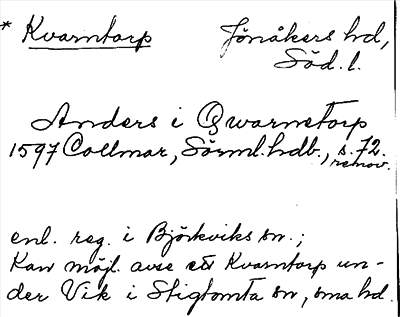 * Kvarntorp Jönåkers hd,
Söd. l.
Anders i Qwarnetorp
1597 Collmar, Sörml. hdb., s. 72.
renov.
enl. reg. i Björkviks sn.;
Kan möjl. avse ett Kvarntorp un-
der Vik i Stigtomta sn, sma hd.